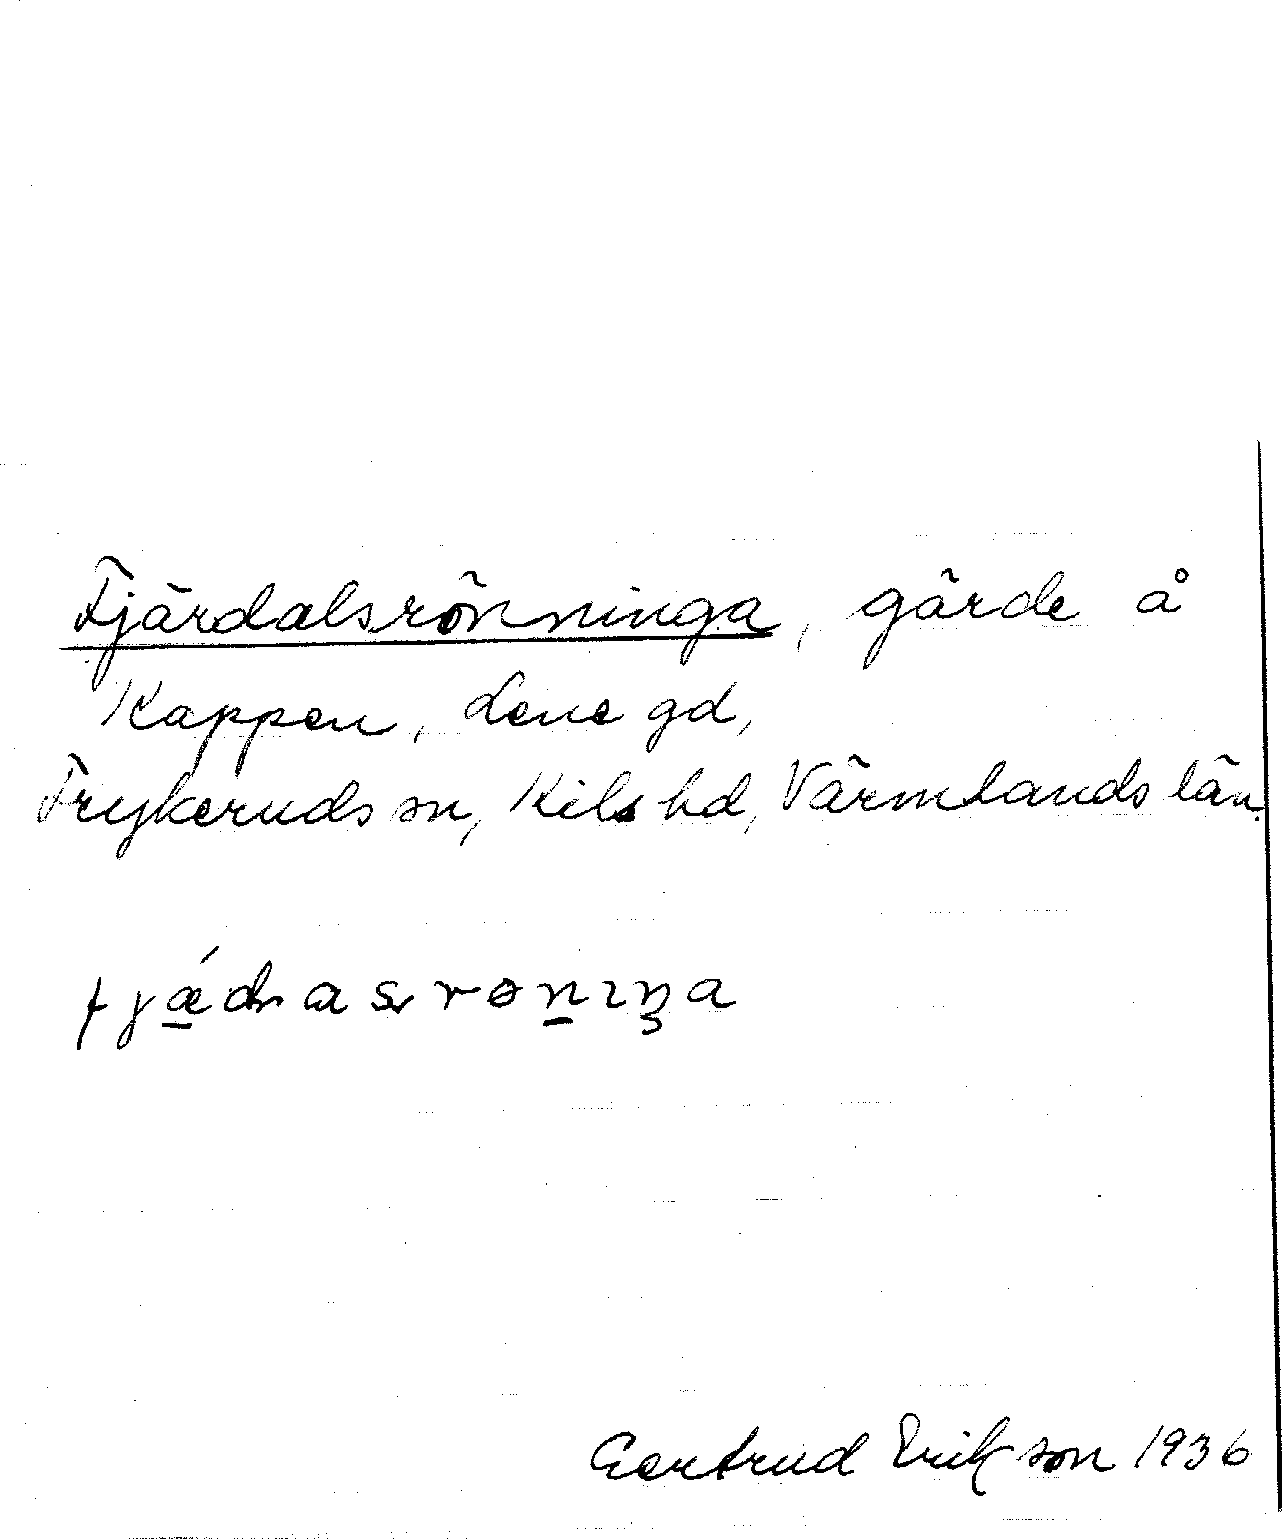 Fjärdalsrönninga, gärde å
Kappen, Lene gd,
Frykeruds sn, Kils hd, Värmlands län.
Gertrud Erikson 1936